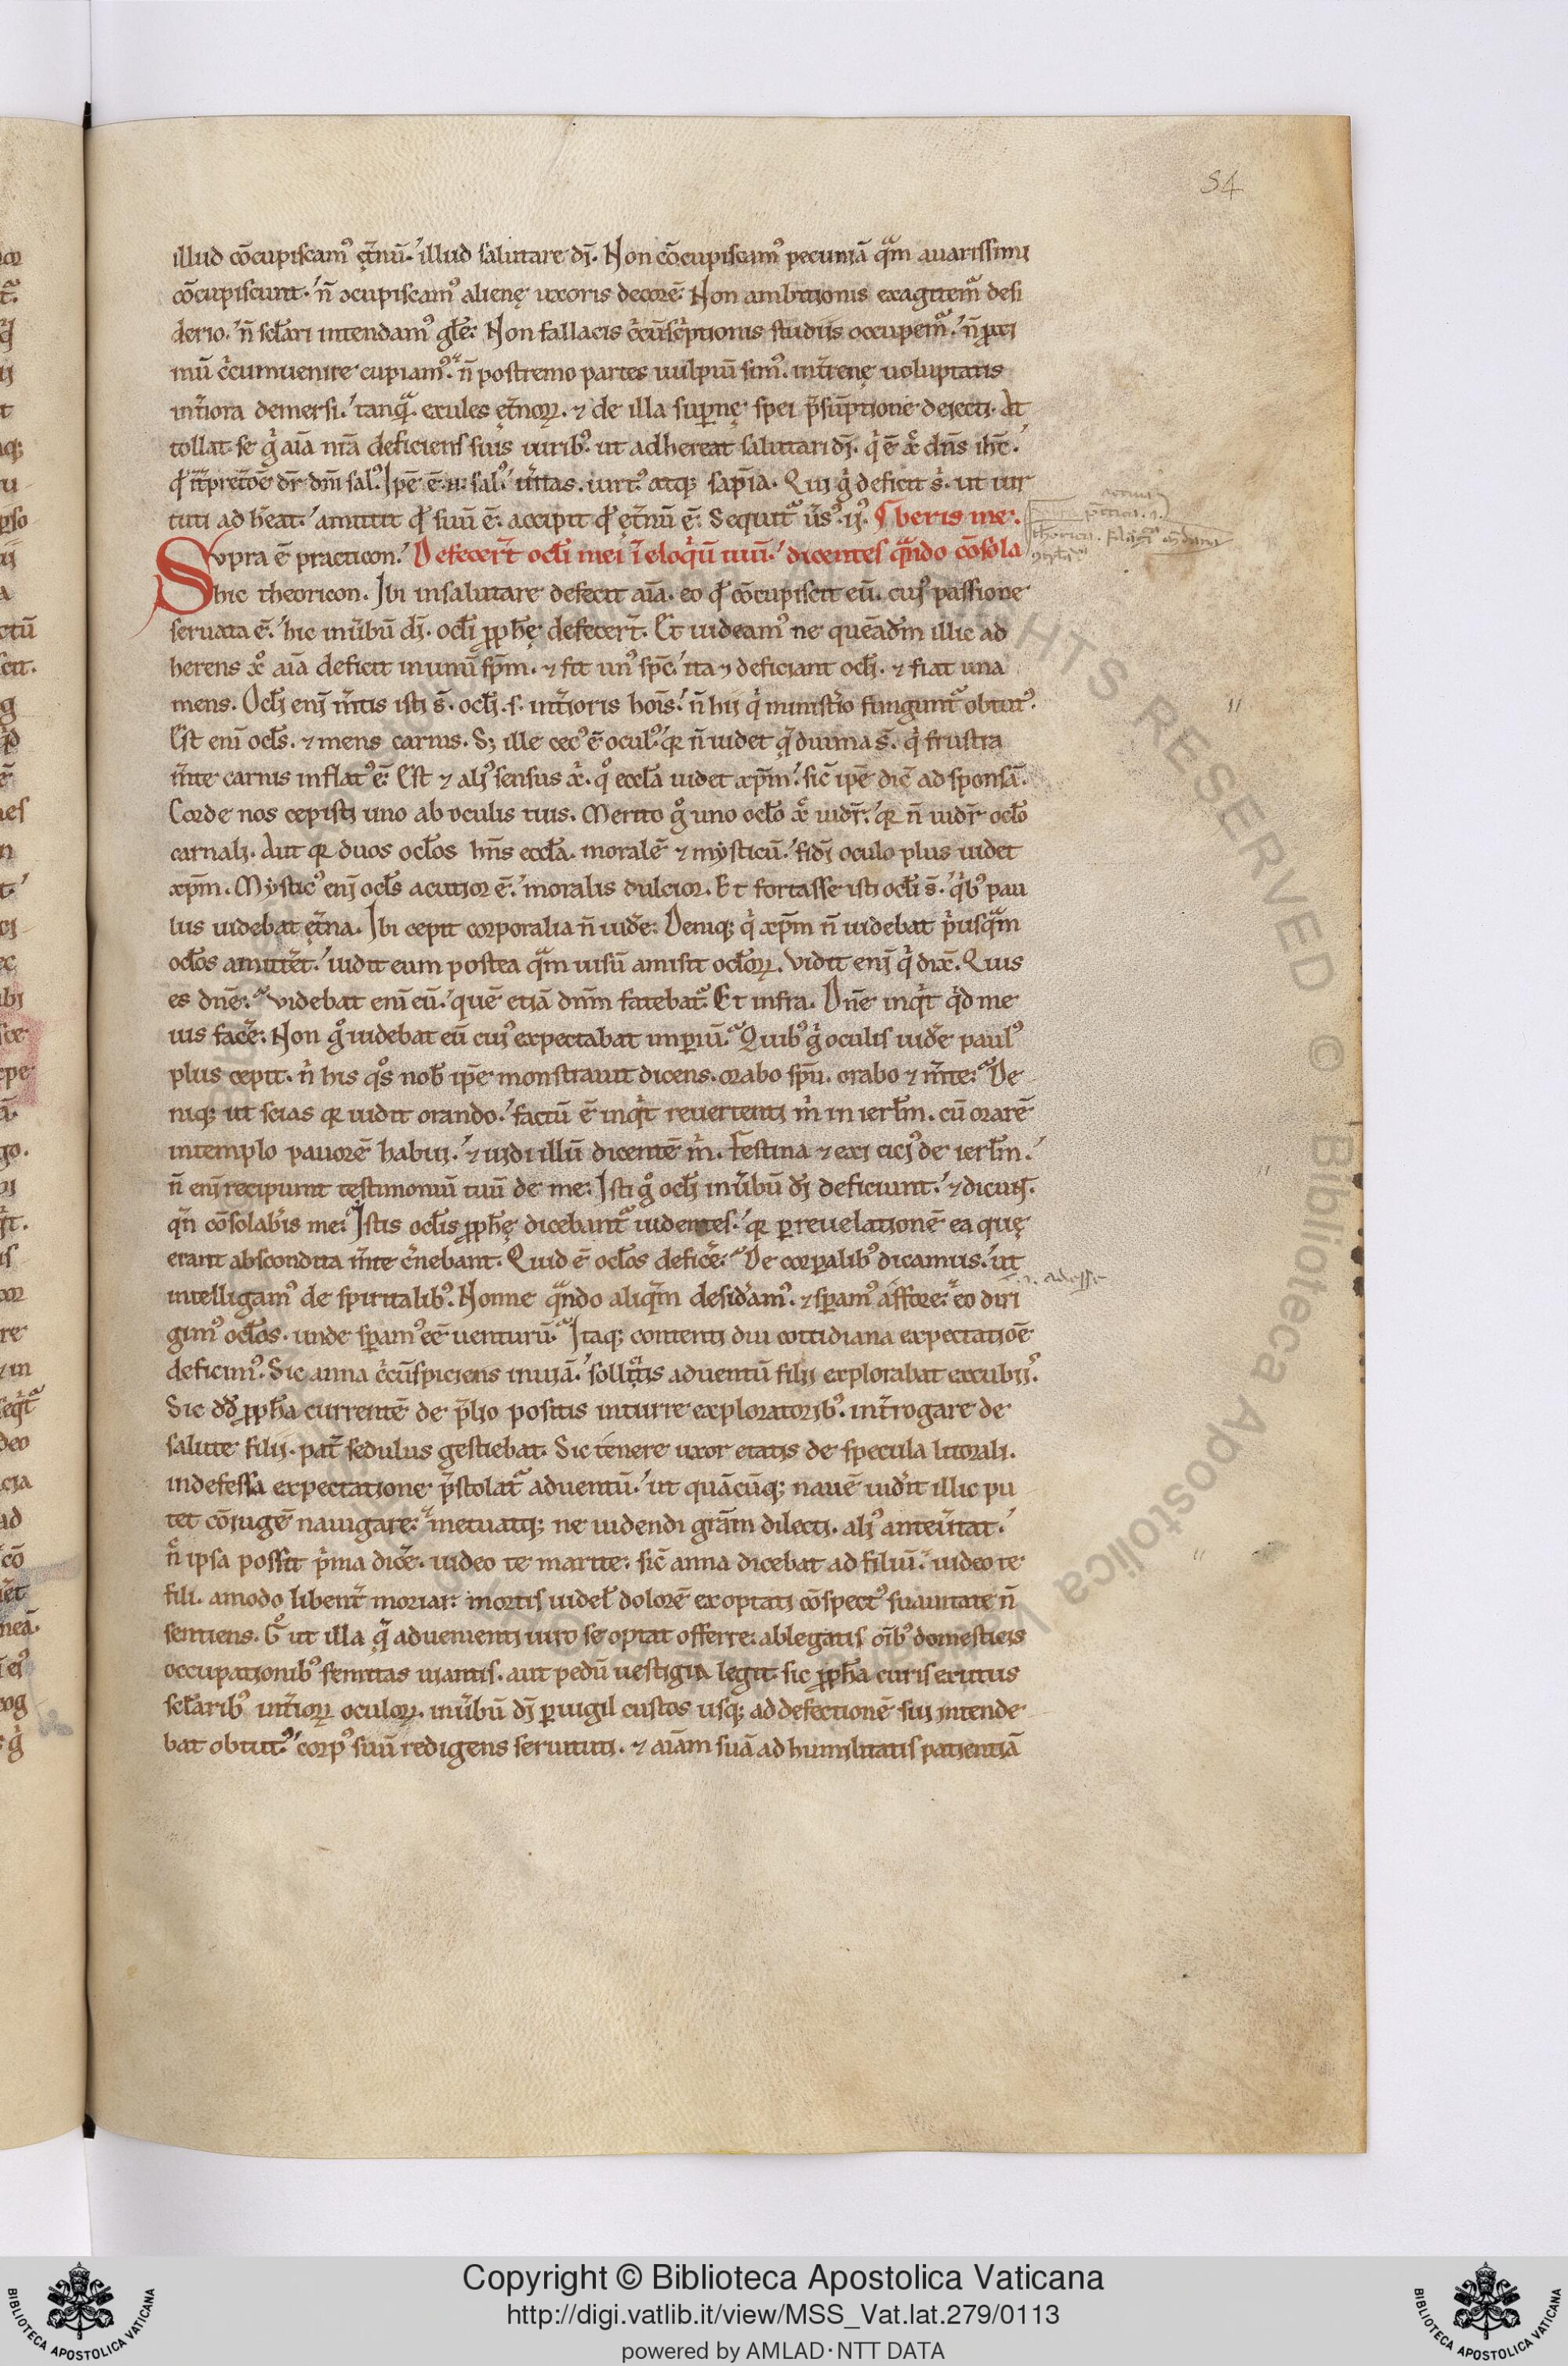 54
illud cōcupiscamꝰ ęt̃nū. illud salutare dī. Non cōcupiscamꝰ pecuniā qͣm auarissimi
cōcupiscunt. n̄ ɔcupiscamꝰ alienę uxoris decorē. Non ambitionis exagitemᷓ desi
derio. n̄ sc̄lari intendamꝰ gl̄ę. Non fallacis c̄cūsc̄ptionis studiis occupemᷓ. n̄ ꝓxi
mū c̄cumuenire cupiamꝰ. n̄ postremo partes uulpiū simꝰ. int̃renę uoluptatis
int̃iora demersi. tanqͣ. exules ęt̃noꝝ. ⁊ de illa suꝑnę spei p̄sūptione deiecti. At
tollat se g̊ aīa nr̄a deficiens suis uiribꝰ. ut adhereat salutari dī. qͥ ē xp̄c dn̄s ih̄c.
qđ int̃pretōe dr̄ dn̄i salꝰ. Ipē ē .n. salꝰ. ũitas. uirtꝰ. atq; sapīa. Qui g̊ deficit s̄. ut uir
tuti adh̄eat. amittit qđ suū ē. accipit qđ ęt̃nū ē. Sequitᷓ ũsꝰ. ij. ¶ beris me.
Supra ē practicon. Defecer̃t ocl̄i mei ī eloq̊ū tuū. dicentes qͣndo cōsola
hic theoricon. Ibi in salutare defecit aīa. eo qđ cōcupiscit eū. cuiꝰ passione
seruata ē. hic in ũbū dī. ocl̄i ꝓph̄ę defecer̃t. Et uideamꝰ ne quēađm illic ad
herens xp̄o aīa deficit in unū sp̄m. ⁊ fit unꝰ sp̄c. ita ⁊ deficiant ocl̄i. ⁊ fiat una
mens. Ocl̄i enī m̄tis isti s̄. ocl̄i .s. int̃ioris hoīs. n̄ hii qͥ minist̃io funguntᷓ obtutꝰ.
Est enī ocl̄s. ⁊ mens carnis. Sꝫ ille cecꝰ ē oculꝰ. qꝛ n̄ uidet qͣ diuina s̄. qͥ frustra
m̄te carnis inflatꝰ ē. Est ⁊ aliꝰ sensus xp̄i. qͦ eccl̄a uidet xp̄m. sic̄ ipē dic̄ ad sponsā.
Corde nos cepisti uno ab oculis tuis. Merito g̊ uno ocl̄o xp̄c uidr̄. qꝛ n̄ uidr̄ ocl̄o
carnali. Aut qꝛ duos ocl̄os hn̄s eccl̄a. moralē ⁊ mysticū. fidī oculo plus uidet
xp̄m. Mysticꝰ enī ocl̄s acutior ē. moralis dulcior. Et fortasse isti ocl̄i s̄. qͥbꝰ pau
lus uidebat ęt̃na. Ibi cepit corporalia n̄ uiđe. Deniq; qͥ xp̄m n̄ uidebat p̄usqͣm
ocl̄os amitt̃et. uidit eum postea qͣm uisū amisit ocl̄oꝝ. Vidit enī qͥ dix̄. Quis
es dn̄e. Videbat enī eū. quē etiā dn̄m fatebatᷓ. Et infra. Dn̄e inqͥt qͥd me
uis facẽ. Non g̊ uidebat eū cuiꝰ expectabat imꝑiū. Quibꝰ g̊ oculis uiđe paulꝰ
plus cepit. n̄ his qͦs nob̄ ipē monstrauit dicens. orabo sp̄u. orabo ⁊ m̄te. De
niq; ut scias qꝛ uidit orando. factū ē inqͥt reuertenti m̄ in ierl̄m. cū orarē
in templo pauorē habui. ⁊ uidi illū dicentē m̄. Festina ⁊ exi citꝰ de ierl̄m.
n̄ enī recipiunt testimoniū tuū de me. Isti g̊ ocl̄i in ũbū dī deficiunt. ⁊ dicunt.
qͣn cōsolab̄is me. Istis ocl̄is ꝓph̄ę dicebantᷓ uidentes. qꝛ ꝑ reuelationē ea quę
erant abscondita m̄te c̃nebant. Quid ē ocl̄os deficẽ. De corꝑalibꝰ dicamus. ut
intelligamꝰ de spiritalibꝰ. Nonne qͣndo aliqͣm desiđamꝰ. ⁊ sꝑamꝰ affore. eo diri
.i. adesse
gimꝰ ocl̄os. unde sꝑamꝰ eē uenturū. Itaq; contenti diu cottidiana expectatiōe
deficimꝰ. Sic anna c̄cūspiciens in uiā. sollicitis aduentū filii explorabat excubiis.
Sic dđ ꝓph̄a currentē de p̄lio positis in turre exploratoribꝰ. int̃rogare de
salute filii. pat̃ sedulus gestiebat. Sic tenere uxor etatis de specula litorali.
indefessa expectatione p̄stolatᷓ aduentū. ut quācūq; nauē uiđit illic pu
tet cōiugē nauigare. metuatq; ne uidendi gr̄am dilecti. aliꝰ anteũtat.
n̄ ipsa possit p̄ma dicẽ. uideo te marite. sic̄ anna dicebat ad filiū. uideo te
fili. amodo libent̃ moriar. mortis uidel̄ dolorē exoptati cōspectꝰ suauitate n̄
sentiens. G̊ ut illa qͣ aduenienti uiro se optat offerre. ablegatis oīb̄ domesticis
occupationibꝰ semitas uiantis. aut pedū uestigia legit. sic ꝓph̄a curis erutus
sc̄laribꝰ int̃ioꝝ oculoꝝ. in ũbū dī ꝑuigil custos usq; ad defectionē sui intende
bat obtutꝰ. corpꝰ suū redigens seruituti. ⁊ aīam suā ad humilitatis patientiā
Copyright © Biblioteca Apostolica Vaticana
http://digi.vatlib.it/view/MSS_Vat.lat.279/0113
powered by AMLAD·NTT DATA
BIBLIOTECA APOSTOLICA VATICANA
BIBLIOTECA APOSTOLICA VATICANA